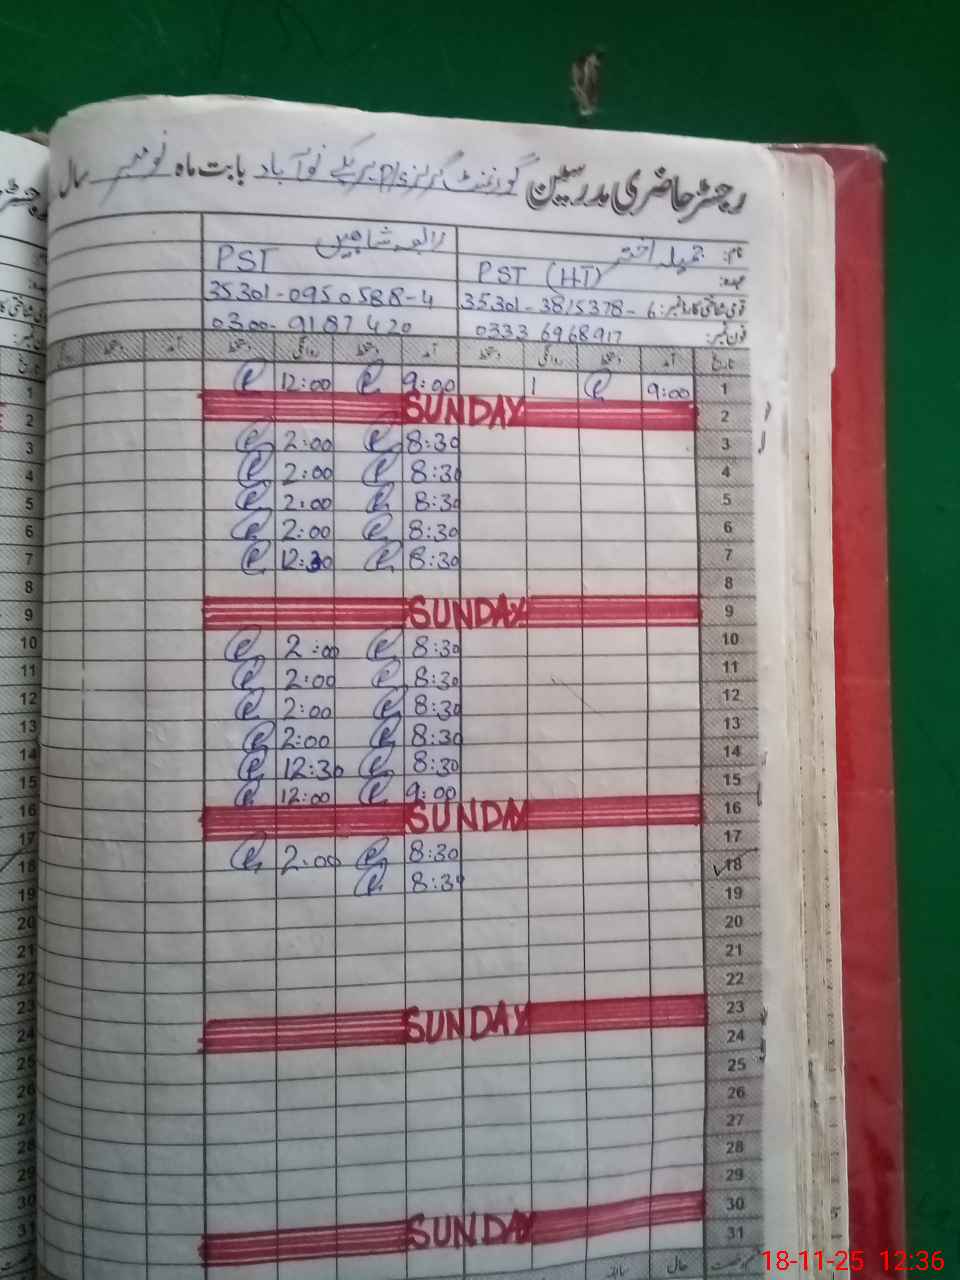 رجسٹر حاضری مدرسین گورنمنٹ گرلز P/S ہریکے نوآباد بابت ماہ نومبر سال
نام: جمیلہ اختر رابعہ شاہین
عہدہ: PST (HT) PST
قومی شناختی کارڈ نمبر: 35301-3815378-6 35301-0950588-4
فون نمبر: 0333 6968917 0300-9187420
تاریخ آمد دستخط روانگی دستخط آمد دستخط روانگی دستخط آمد دستخط
1 9:00 1 9:00 12:00
2 SUNDAY
3 8:30 2:00
4 8:30 2:00
5 8:30 2:00
6 8:30 2:00
7 8:30 12:30
8
9 SUNDAY
10 8:30 2:00
11 8:30 2:00
12 8:30 2:00
13 8:30 2:00
14 8:30 12:30
15 9:00 12:00
16 SUNDAY
17 8:30 2:00
18 8:30
19
20
21
22
23 SUNDAY
24
25
26
27
28
29
30 SUNDAY
31
حال
سابقہ
18-11-25 12:36